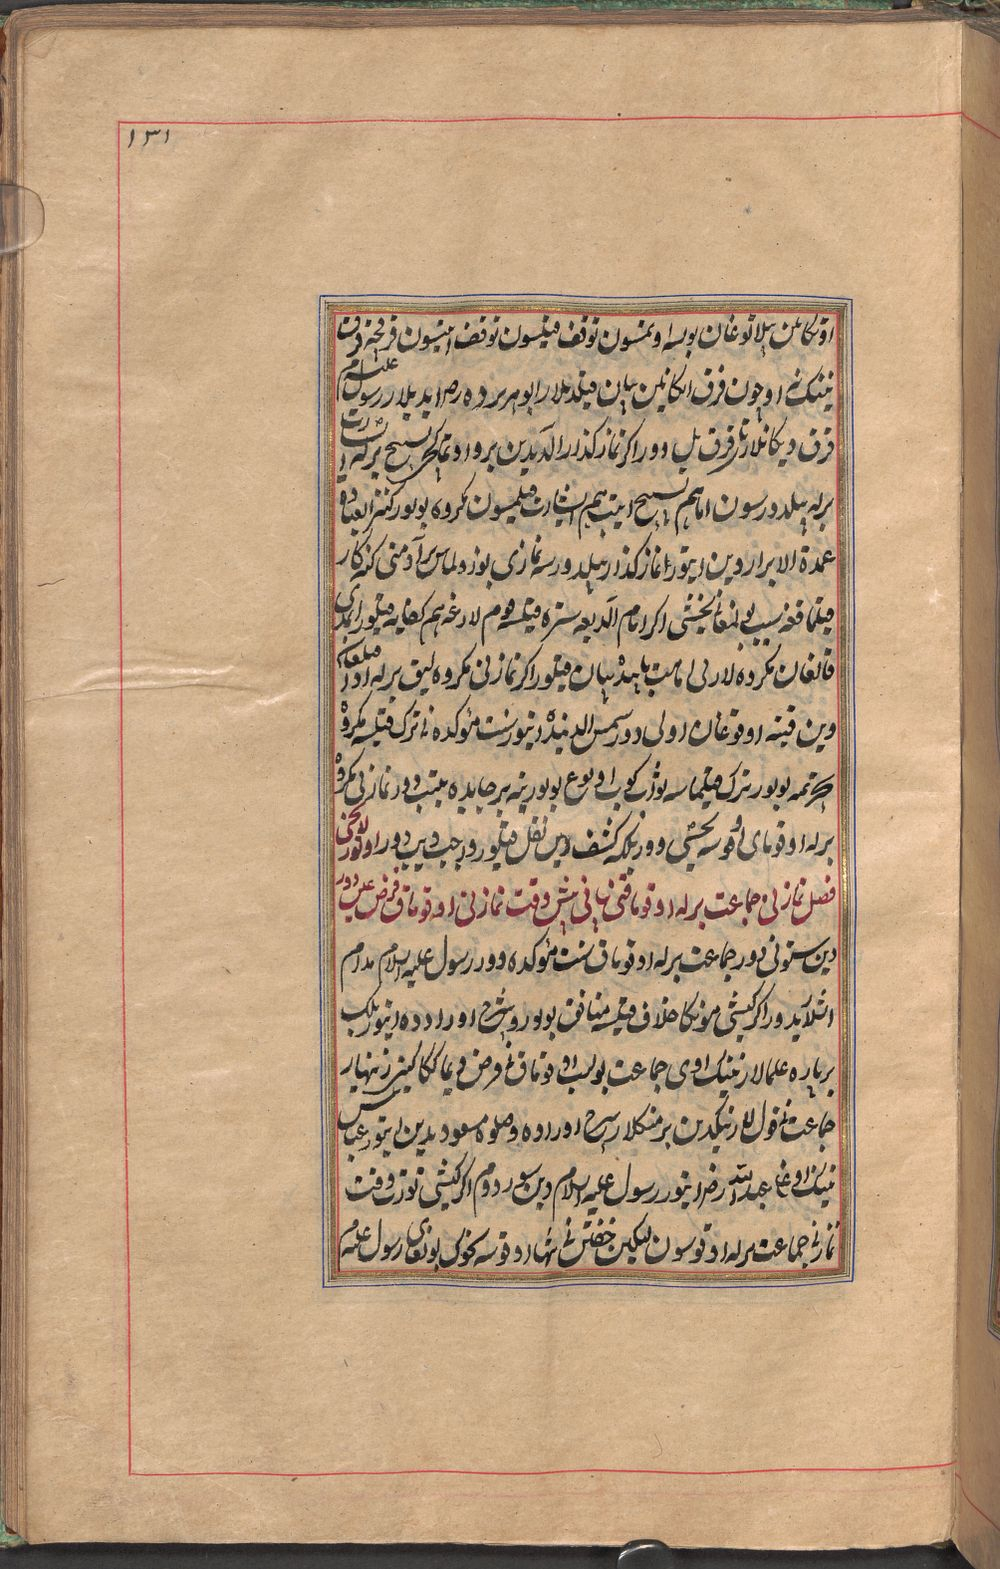 ١٣١
اوتکالن بیلا تورغان بولسه اوتمسون توقف قیلسون توقف ایتسون قرقچه قرق
نینک نی اوچون قرق ایکانلین بیان قیلدیلار ابو هریرده رض ایدیلار رسول علیه السلام
قرق دیکانلاری قرق ییل دور اکر نماز کذار آلدیدین برو اوتماکچی تسبیح برله یا اشارت
برله بیلدورسون اما هم تسبیح ایتیب هم اشارت قیلمسون مکروه بولور کنز العباده
عمدة الابراردین ایتور نماز کذار بیلدورسه نمازی بوزولماس بر آدمنی کنه کار
قیلماقغه سبب بولمغان یخشی اکر امام آلدیغه ستره قیلسه قوم لارغه هم کفایه قیلور ایمدی
قالغان مکروه لارنی امامت بابیده بیان قیلور اکر نمازنی مکروه لیق برله ادا قیلغان
دین قیته اوقوغان اولی دور شمس الدینده دنیور سنت مؤکده نی ترک قیلسه مکروه
تحریمه بولور ترک قیلماسه نوزک کوب اویوغ بولور ینه بر جایده بیتیب دور نمازنی مکروه
برله اوقومای قویسه یخشی دور بلکه کشف دین نقل قیلور واجب دیب دور اوقور یخشی
فصل نمازنی جماعت برله اوقوماقنی بیانی بیش وقت نمازنی اوقوماق فرض عین دور
دین ستونی دور جماعت برله اوقوماق سنت مؤکده دور رسول علیه السلام مدام
ایشلایدور اکر کیشی مونکا خلاف قیلسه منافق بولور شرح اوراده ایتور بلکه
بر پاره علمالارنینک اوی جماعت بولیب اوقوماق نی فرض دیماککا کیتر زنهار
جماعت نی قول لارنیکدین برمنکلار شرح اوراده صلوة مسعودیدین ایتور عباس
نینک اوغلی عبدالله رض ایتور رسول علیه السلام دین سوردوم اکر کیشی توزت وقت
نمازنی جماعت برله اوقوسون لیکین خفتن نی تنها اوقوسه نچوک بولغای رسول علیه م